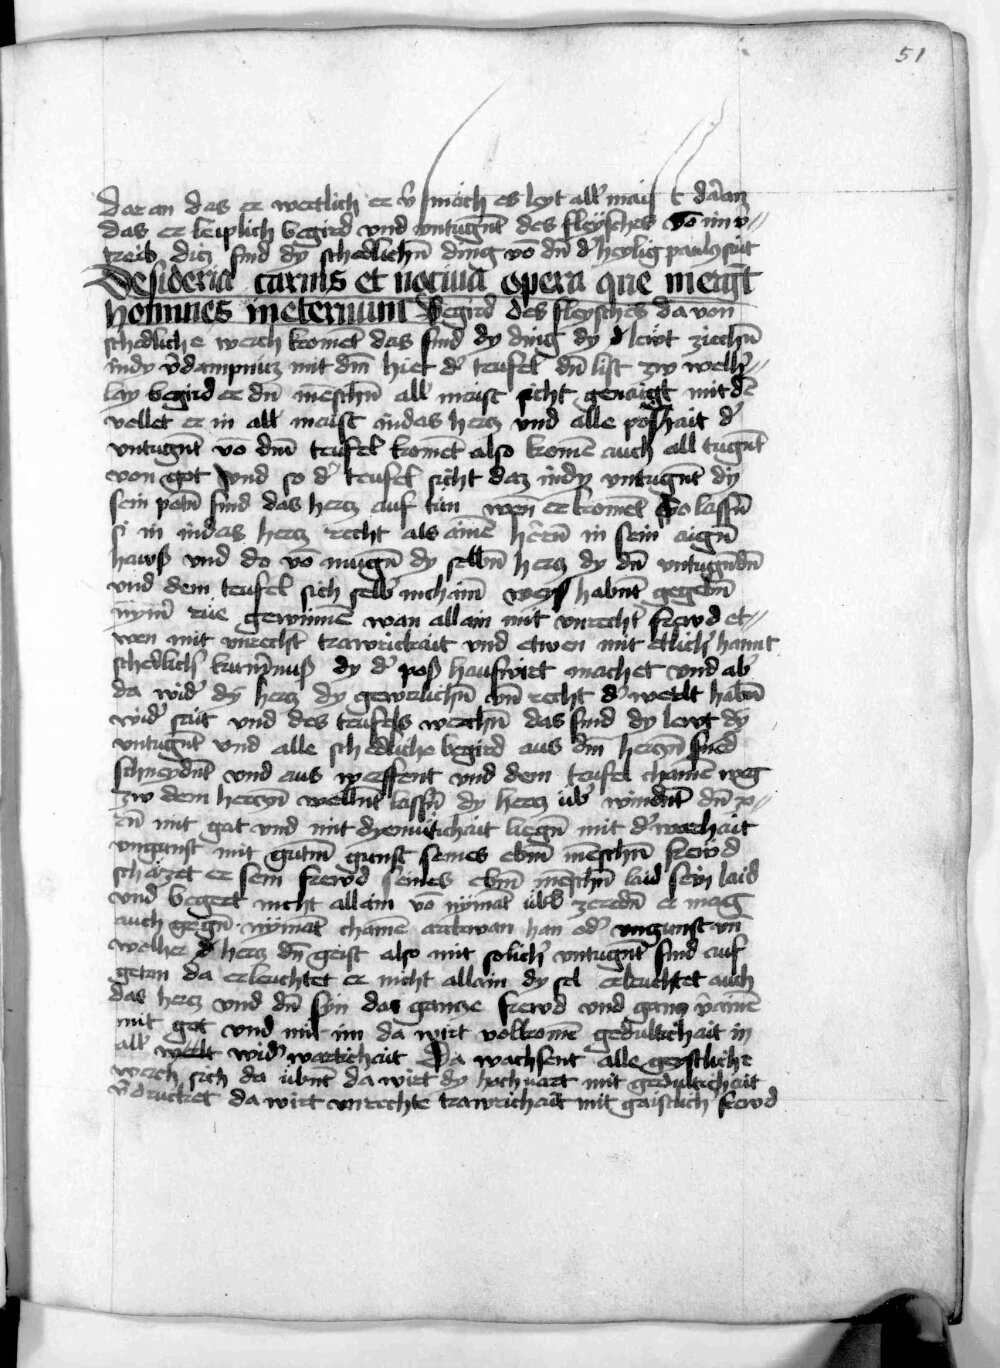 51
dar an das er wertlich er v̄ smäch es leyt all mais t daran
das er leiplich begird vnd vntugn̄t des fleysches vō im v̄=
treib ditz sind dy schedlichn̄ ding vō dn̄ d' heylig paulꝯ seit
Desideria carnis et nociua opera que mergūt
homines ineternum Begird des fleysches da von
schedliche werch komēt das sind dy ding dy d lewt ziechn̄
indy v̄dampnuz mit dm̄ hier d' teufel dn̄ list zw welh'=
lay begird er dn̄ mēschn̄ all' maist sicht genaigt mit dē
vellet er in all' maist indas hertz vnd alle poshait d'
vntugn̄t vō dm̄ teufel komēt also komē auch all tugn̄t
von got Vnd so d' teufel sicht daz indy vntugn̄t dy
sein potn̄ sind das hertz auf tün wen er komēt So lassn̄
si in indas hertz recht als ainē hērn̄ in sein aign̄
haws vnd do vō mugn̄ dy selbn̄ hertz dy dn̄ vntugn̄dn̄
vnd dem teufel sich selb' inchainē weys habnt gegebn̄
nym' rue gewinnē wan allain mit vnrecht' frewd et=
wen mit vnrecht' trawrickait vnd etwen mit etlich' haimt
schedlich' kumernuß dy d' poß hauswirt machet vnd ab'
da wid' dy hertz dy gewerlichn̄ vn̄ recht d' werlt habn̄
wid' seit vnd des teufels werchn̄ das sind dy lewt dy
vntugn̄t vnd alle schedliche begird aus dm̄ hertzn̄ sned
schneydn̄t vnd aus werffent vnd dem teufel chainē weg
zw dem hertzn̄ wellnt lassn̄ dy hertz üb' windnt dn̄ zo=
rn̄ mit got vnd mit dyemütichait liegn̄ mit d' warhait
vngunst mit gutm̄ gunst seines ebm̄ mēschn̄ frewd
schätzet er sein frewd seines ebm̄ mēschn̄ laid sein laid
vnd begert nicht allain vō nymāt übel ze redn̄ er mag
auch gegn̄ nymāt chainē archwan han od' vngunst vn̄
welhe d hertz dn̄ geist also mit solich' vntugn̄t sind auf
getan da erleuchtet er nicht allain dy sel erleuchtet auch
das hertz vnd dn̄ syn das gancze frewd vnd gancz v̄ainē
mit got vnd mit im da wirt volkomē gedultichait in
all' werlt wid'wartichait Da wachsent alle geystliche
werch sich da übnt da wirt dy hochuart mit gedultichait
v̄druchet da wirt vnrechte trawrichait mit gaistlich' frewd